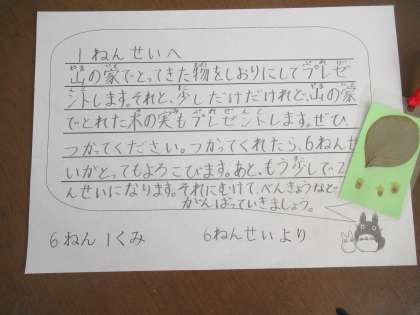 1ねんせいへ
山の家でとってきた物をしおりにしてプレゼ
ントします。それと、少しだけだけれど、山の家
でとれた木の実もプレゼントします。ぜひ、
つかってください。つかってくれたら、6ねんせ
いがとってもよろこびます。あと、もう少しで2ね
んせいになります。それにむけて、べんきょうなど
がんばっていきましょう。
6ねん1くみ 6ねんせいより